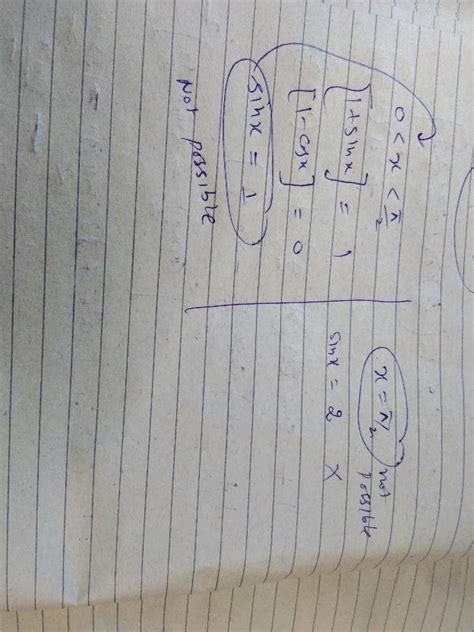 0 < x < π/2
[1+sinx] = 1
[1-cosx] = 0
sinx = 1
Not possible
x = π/2 not possible
sinx = 2 X